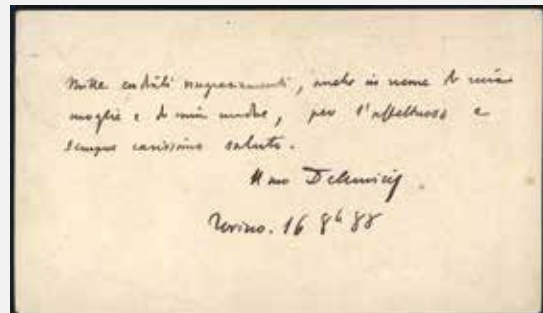 Mille cordiali ringraziamenti, anche in nome di mia
moglie e di mia madre, per l'affettuoso e
sempre carissimo saluto.
Il suo DeAmicis
Torino. 16 8bre 88